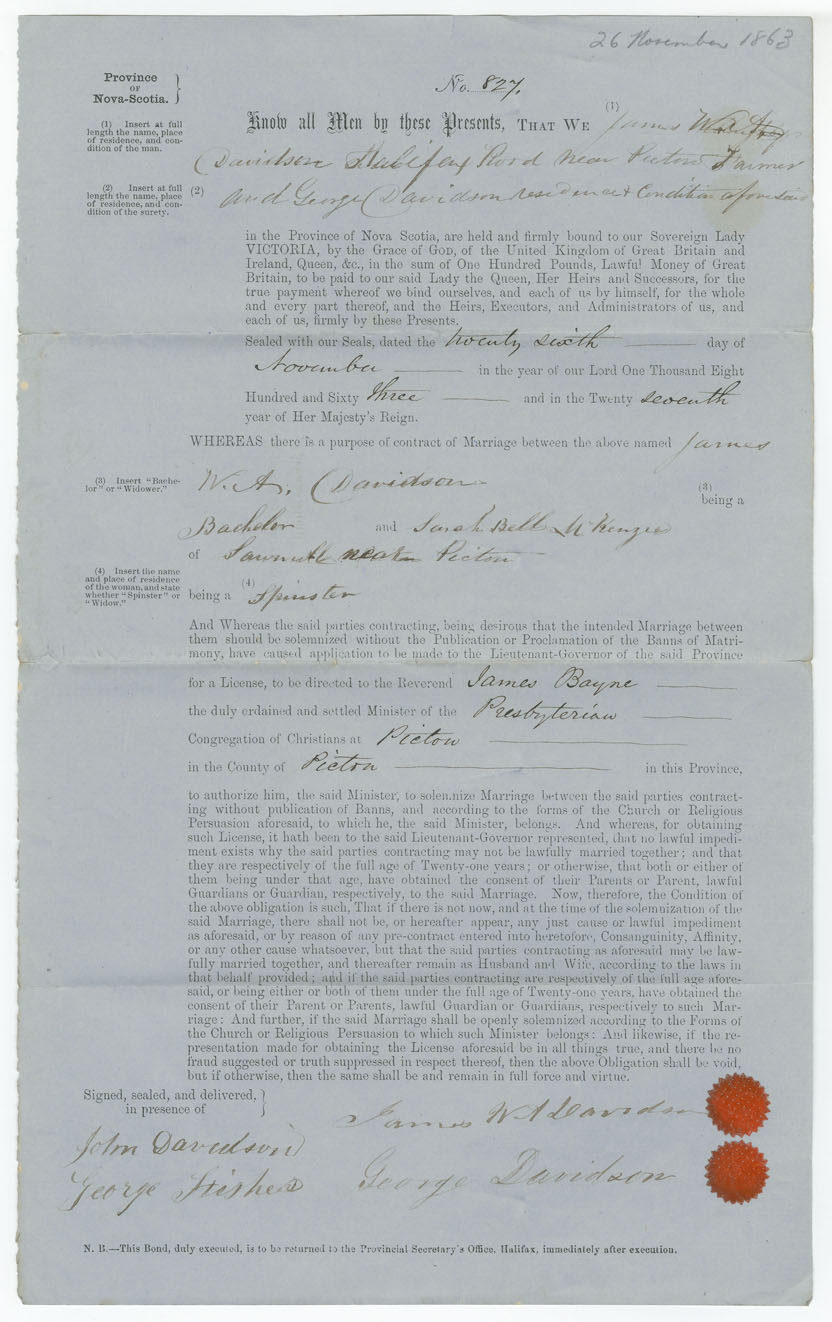 26 November 1863
Province
OF
Nova-Scotia.
No. 827.
(1) Insert at full
length the name, place
of residence, and con-
dition of the man.
Know all Men by these Presents, THAT WE (1) James W
Davidson Halifax Road near Pictou Farmer
(2) Insert at full
length the name, place
of residence, and con-
dition of the surety.
(2) and George Davidson residence & Condition aforesaid
in the Province of Nova Scotia, are held and firmly bound to our Sovereign Lady
VICTORIA, by the Grace of GOD, of the United Kingdom of Great Britain and
Ireland, Queen, &c., in the sum of One Hundred Pounds, Lawful Money of Great
Britain, to be paid to our said Lady the Queen, Her Heirs and Successors, for the
true payment whereof we bind ourselves, and each of us by himself, for the whole
and every part thereof, and the Heirs, Executors, and Administrators of us, and
each of us, firmly by these Presents.
Sealed with our Seals, dated the twenty sixth day of
November in the year of our Lord One Thousand Eight
Hundred and Sixty three and in the Twenty seventh
year of Her Majesty's Reign.
WHEREAS there is a purpose of contract of Marriage between the above named James
(3) Insert "Bache-
lor" or "Widower."
W. A. Davidson (3) being a
Bachelor and Sarah Bell McKenzie
of Sawmill near Pictou
(4) Insert the name
and place of residence
of the woman, and state
whether "Spinster" or
"Widow."
being a (4) Spinster
And Whereas the said parties contracting, being desirous that the intended Marriage between
them should be solemnized without the Publication or Proclamation of the Banns of Matri-
mony, have caused application to be made to the Lieutenant-Governor of the said Province
for a License, to be directed to the Reverend James Bayne
the duly ordained and settled Minister of the Presbyterian
Congregation of Christians at Pictou
in the County of Pictou in this Province,
to authorize him, the said Minister, to solemnize Marriage between the said parties contract-
ing without publication of Banns, and according to the forms of the Church or Religious
Persuasion aforesaid, to which he, the said Minister, belongs. And whereas, for obtaining
such License, it hath been to the said Lieutenant-Governor represented, that no lawful impedi-
ment exists why the said parties contracting may not be lawfully married together; and that
they are respectively of the full age of Twenty-one years; or otherwise, that both or either of
them being under that age, have obtained the consent of their Parents or Parent, lawful
Guardians or Guardian, respectively, to the said Marriage. Now, therefore, the Condition of
the above obligation is such, That if there is not now, and at the time of the solemnization of the
said Marriage, there shall not be, or hereafter appear, any just cause or lawful impediment
as aforesaid, or by reason of any pre-contract entered into heretofore, Consanguinity, Affinity,
or any other cause whatsoever, but that the said parties contracting as aforesaid may be law-
fully married together, and thereafter remain as Husband and Wife, according to the laws in
that behalf provided; and if the said parties contracting are respectively of the full age afore-
said, or being either or both of them under the full age of Twenty-one years, have obtained the
consent of their Parent or Parents, lawful Guardian or Guardians, respectively to such Mar-
riage: And further, if the said Marriage shall be openly solemnized according to the Forms of
the Church or Religious Persuasion to which such Minister belongs: And likewise, if the re-
presentation made for obtaining the License aforesaid be in all things true, and there be no
fraud suggested or truth suppressed in respect thereof, then the above Obligation shall be void,
but if otherwise, then the same shall be and remain in full force and virtue.
Signed, sealed, and delivered,
in presence of
James W A Davidson
John Davidson
George Davidson
George
N. B.—This Bond, duly executed, is to be returned to the Provincial Secretary's Office, Halifax, immediately after execution.